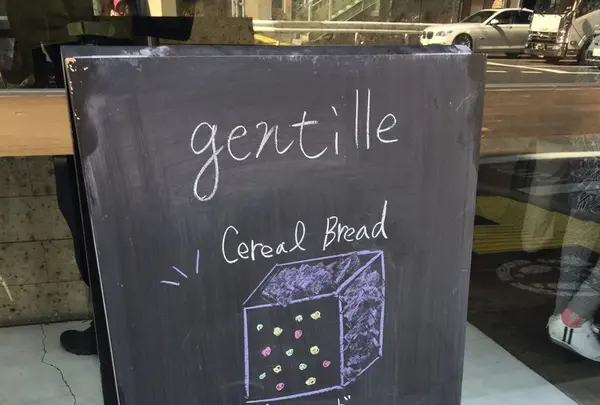 gentille
Cereal Bread